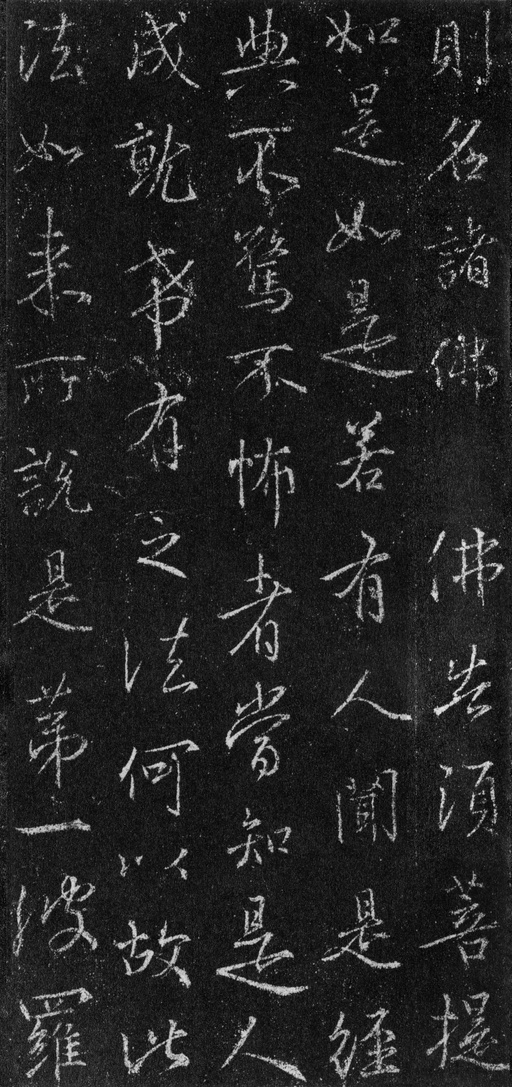 則名諸佛佛告須菩提
如是如是若有人聞是經
典不驚不怖者當知是人
成就希有之法何以故此
法如來所說是第一波羅